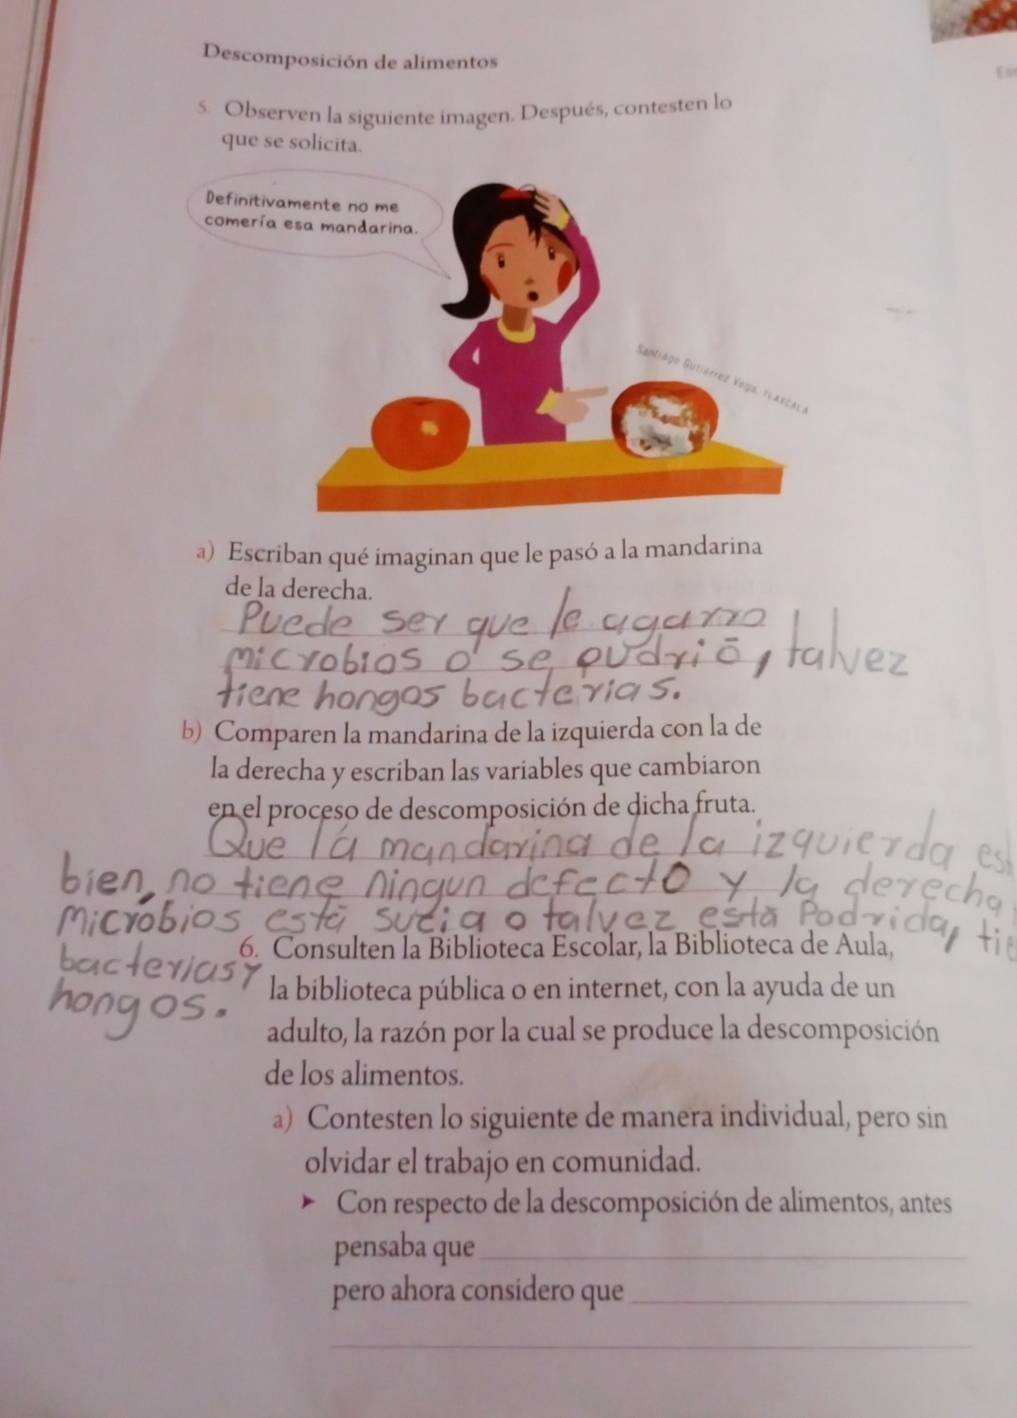 Descomposición de alimentos
5. Observen la siguiente imagen. Después, contesten lo
que se solicita.
Definitivamente no me
comería esa mandarina.
Santiago Gutiérrez Vega, TLAXCALA
a) Escriban qué imaginan que le pasó a la mandarina
de la derecha.
Puede ser que le agarro
microbios o se pudrió, talvez
tiene hongos bacterias.
b) Comparen la mandarina de la izquierda con la de
la derecha y escriban las variables que cambiaron
en el proceso de descomposición de dicha fruta.
Que la mandarina de la izquierda
bien, no tiene ningun defecto y la derecha
Microbios está sucia o talvez está Podrida, tie
6. Consulten la Biblioteca Escolar, la Biblioteca de Aula,
bacterias y
la biblioteca pública o en internet, con la ayuda de un
hongos.
adulto, la razón por la cual se produce la descomposición
de los alimentos.
a) Contesten lo siguiente de manera individual, pero sin
olvidar el trabajo en comunidad.
Con respecto de la descomposición de alimentos, antes
pensaba que
pero ahora considero que